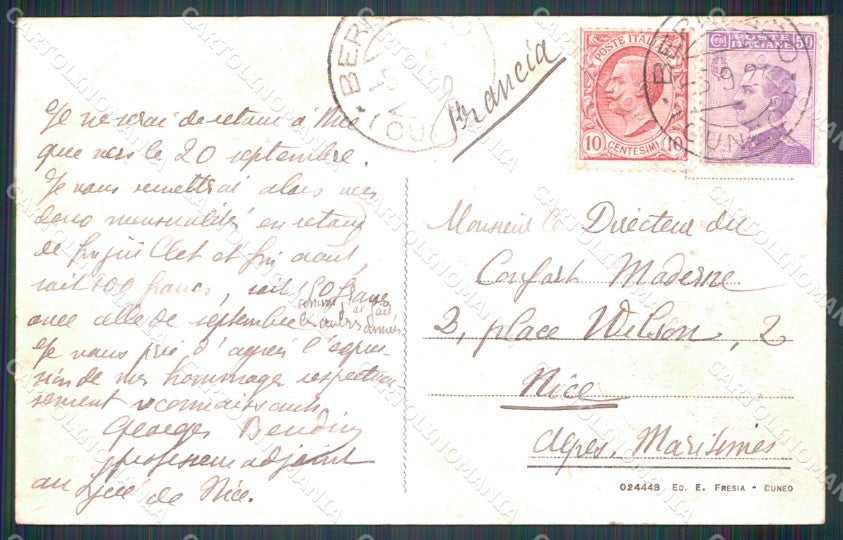 Je ne serai de retour à Nice
que vers le 20 septembre.
Je vous remettrai alors mes
deux mensualités en retard
de juin Juillet et fin août,
soit 100 francs, soit 150 francs
avec celle de septembre comme j'ai fait
les autres années.
Je vous prie d'agréer l'expres-
sion de mes hommages respectueu-
sement reconnaissants
Georges
professeur adjoint
au Lycée de Nice.
BERN
CUN
Francia
POSTE ITALIANE
10 CENTESIMI 10
Cent. POSTE ITALIANE 50
CUNE
Monsieur le Directeur du
Confort Moderne
2, place Wilson, 2
Nice
Alpes. Maritimes
024448 ED. E. FRESIA - CUNEO
CARTOLINOMANIA